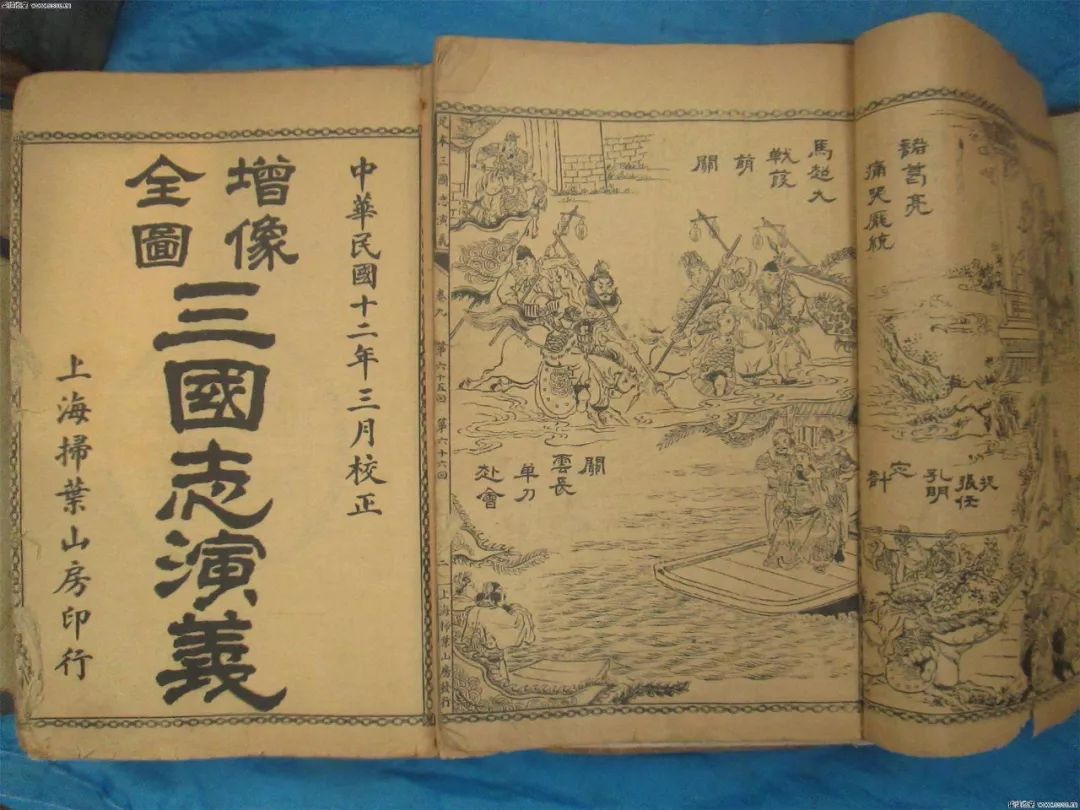 中華民國十二年三月校正
增像
全圖
三國志演義
上海掃葉山房印行
足本三國志演義
卷九
第六十五回
第六十六回
二
上海掃葉山房發行
馬超大
戰葭
萌
關
關
雲長
单刀
赴會
諸葛亮
痛哭龐統
捉
張任
孔明
定
計